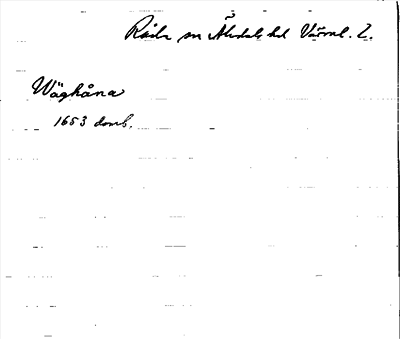 Råda sn Älvdals hd Värml. l.
Wäghåna
1653 domb.